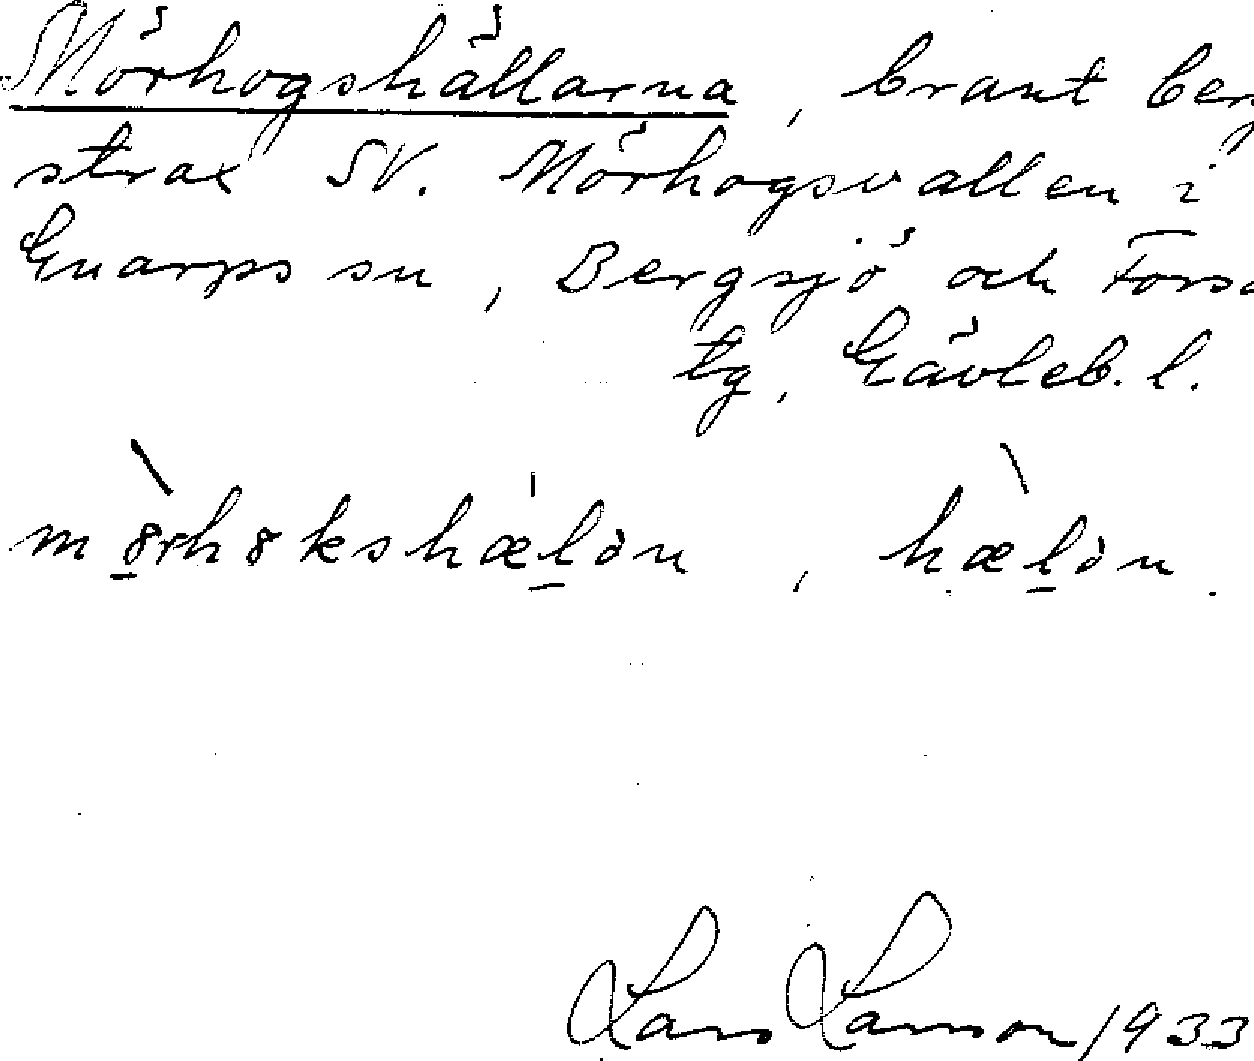 Mörhogshällarna, brant berg
strax SV. Mörhogsvallen i
Gnarps sn, Bergsjö och Forsa
tg, Gävleb. l.
mörhökshælon, hælon.
Lars Larsson 1933